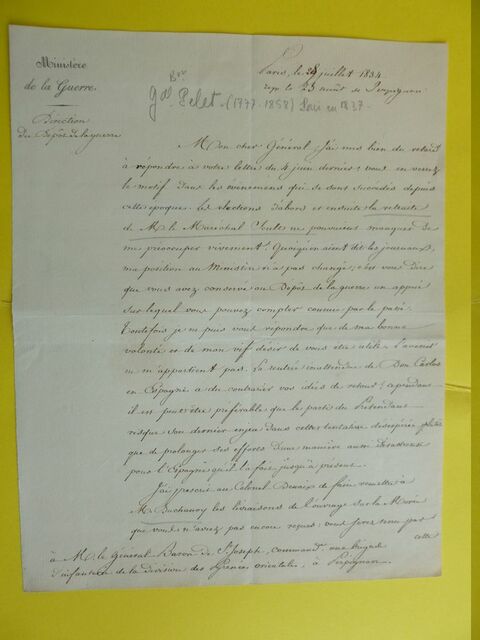 Ministère
de la Guerre.
Direction
du Dépôt de la guerre
Paris, le 29 juillet 1834
rep le 23 août de Perpignan
Bon
gal Pelet - (1777-1858) Pair en 1837 -
Mon cher Général, j'ai mis bien du retard
à répondre à votre lettre du 4 juin dernier; vous en verrez
le motif dans les événemens qui se sont succédés depuis
cette époque. Les élections d'abord et ensuite la retraite
de M. le Maréchal Soult ne pouvaient manquer de
me préoccuper vivement. Quoiqu'en aient dit les journaux,
ma position au Ministère n'a pas changé; c'est vous dire
que vous avez conservé au Dépôt de la guerre un appui
sur lequel vous pouvez compter comme par le passé.
Toutefois je ne puis vous répondre que de ma bonne
volonté et de mon vif désir de vous être utile. L'avenir
ne m'appartient pas. La rentrée inattendue de Don Carlos
en Espagne a dû contrarier vos idées de retour; cependant
il est peut être préférable que le parti du Prétendant
risque son dernier enjeu dans cette tentative désespérée plutôt
que de prolonger ses efforts d'une manière aussi désastreuse
pour l'Espagne qu'il l'a fait jusqu'à présent.
J'ai prescrit au Colonel de faire remettre à
M. Buchanoy les livraisons de l'ouvrage sur la Morée
que vous n'aviez pas encore reçues; vous ferez
cette
à M. le Général Baron de St Joseph, command. une brigade
d'infanterie de la division des Pyrénées orientales, à Perpignan.